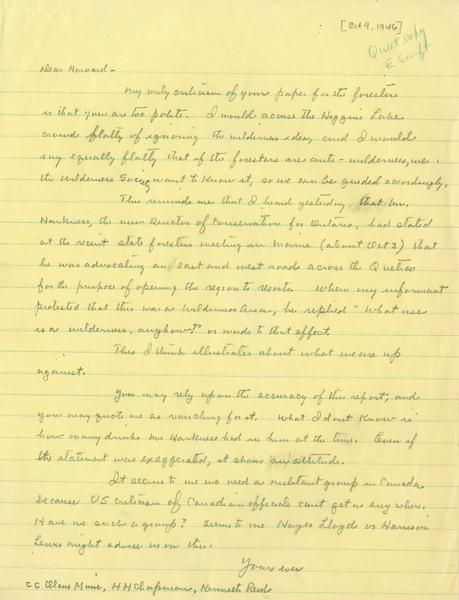 [Oct 9, 1946]
Quest copy
E. Swift
Dear Howard -
My only criticism of your paper for the foresters
is that you are too polite. I would accuse the Higgins Lake
crowd flatly of ignoring the wilderness idea, and I would
say equally flatly that if the foresters are anti-wilderness, we in
the Wilderness Society want to know it, so we can be guided accordingly.
This reminds me that I heard yesterday, that Mr.
Harkness, the new Director of Conservation for Ontario, had stated
at the recent state foresters meeting in Maine (about Oct 3) that
he was advocating an east and west roads across the Quetico
for the purpose of opening the region to resorts. When my informant
protested that this was a Wilderness Area, he replied "What use
is a wilderness, anyhow?" or words to that effect.
This I think illustrates about what we are up
against.
You may rely upon the accuracy of this report, and
you may quote me as vouching for it. What I don't know is
how many drinks Mr Harkness had in him at the time. Even if
the statement was exaggerated, it shows an attitude.
It seems to me we need a militant group in Canada
because US criticism of Canadian officials can't get us any where.
Have we such a group? Seems to me Hoyes Lloyd or Harrison
Lewis might advise us on this.
Yours ever
CC Olaus Murie, HH Chapman, Kenneth Reid